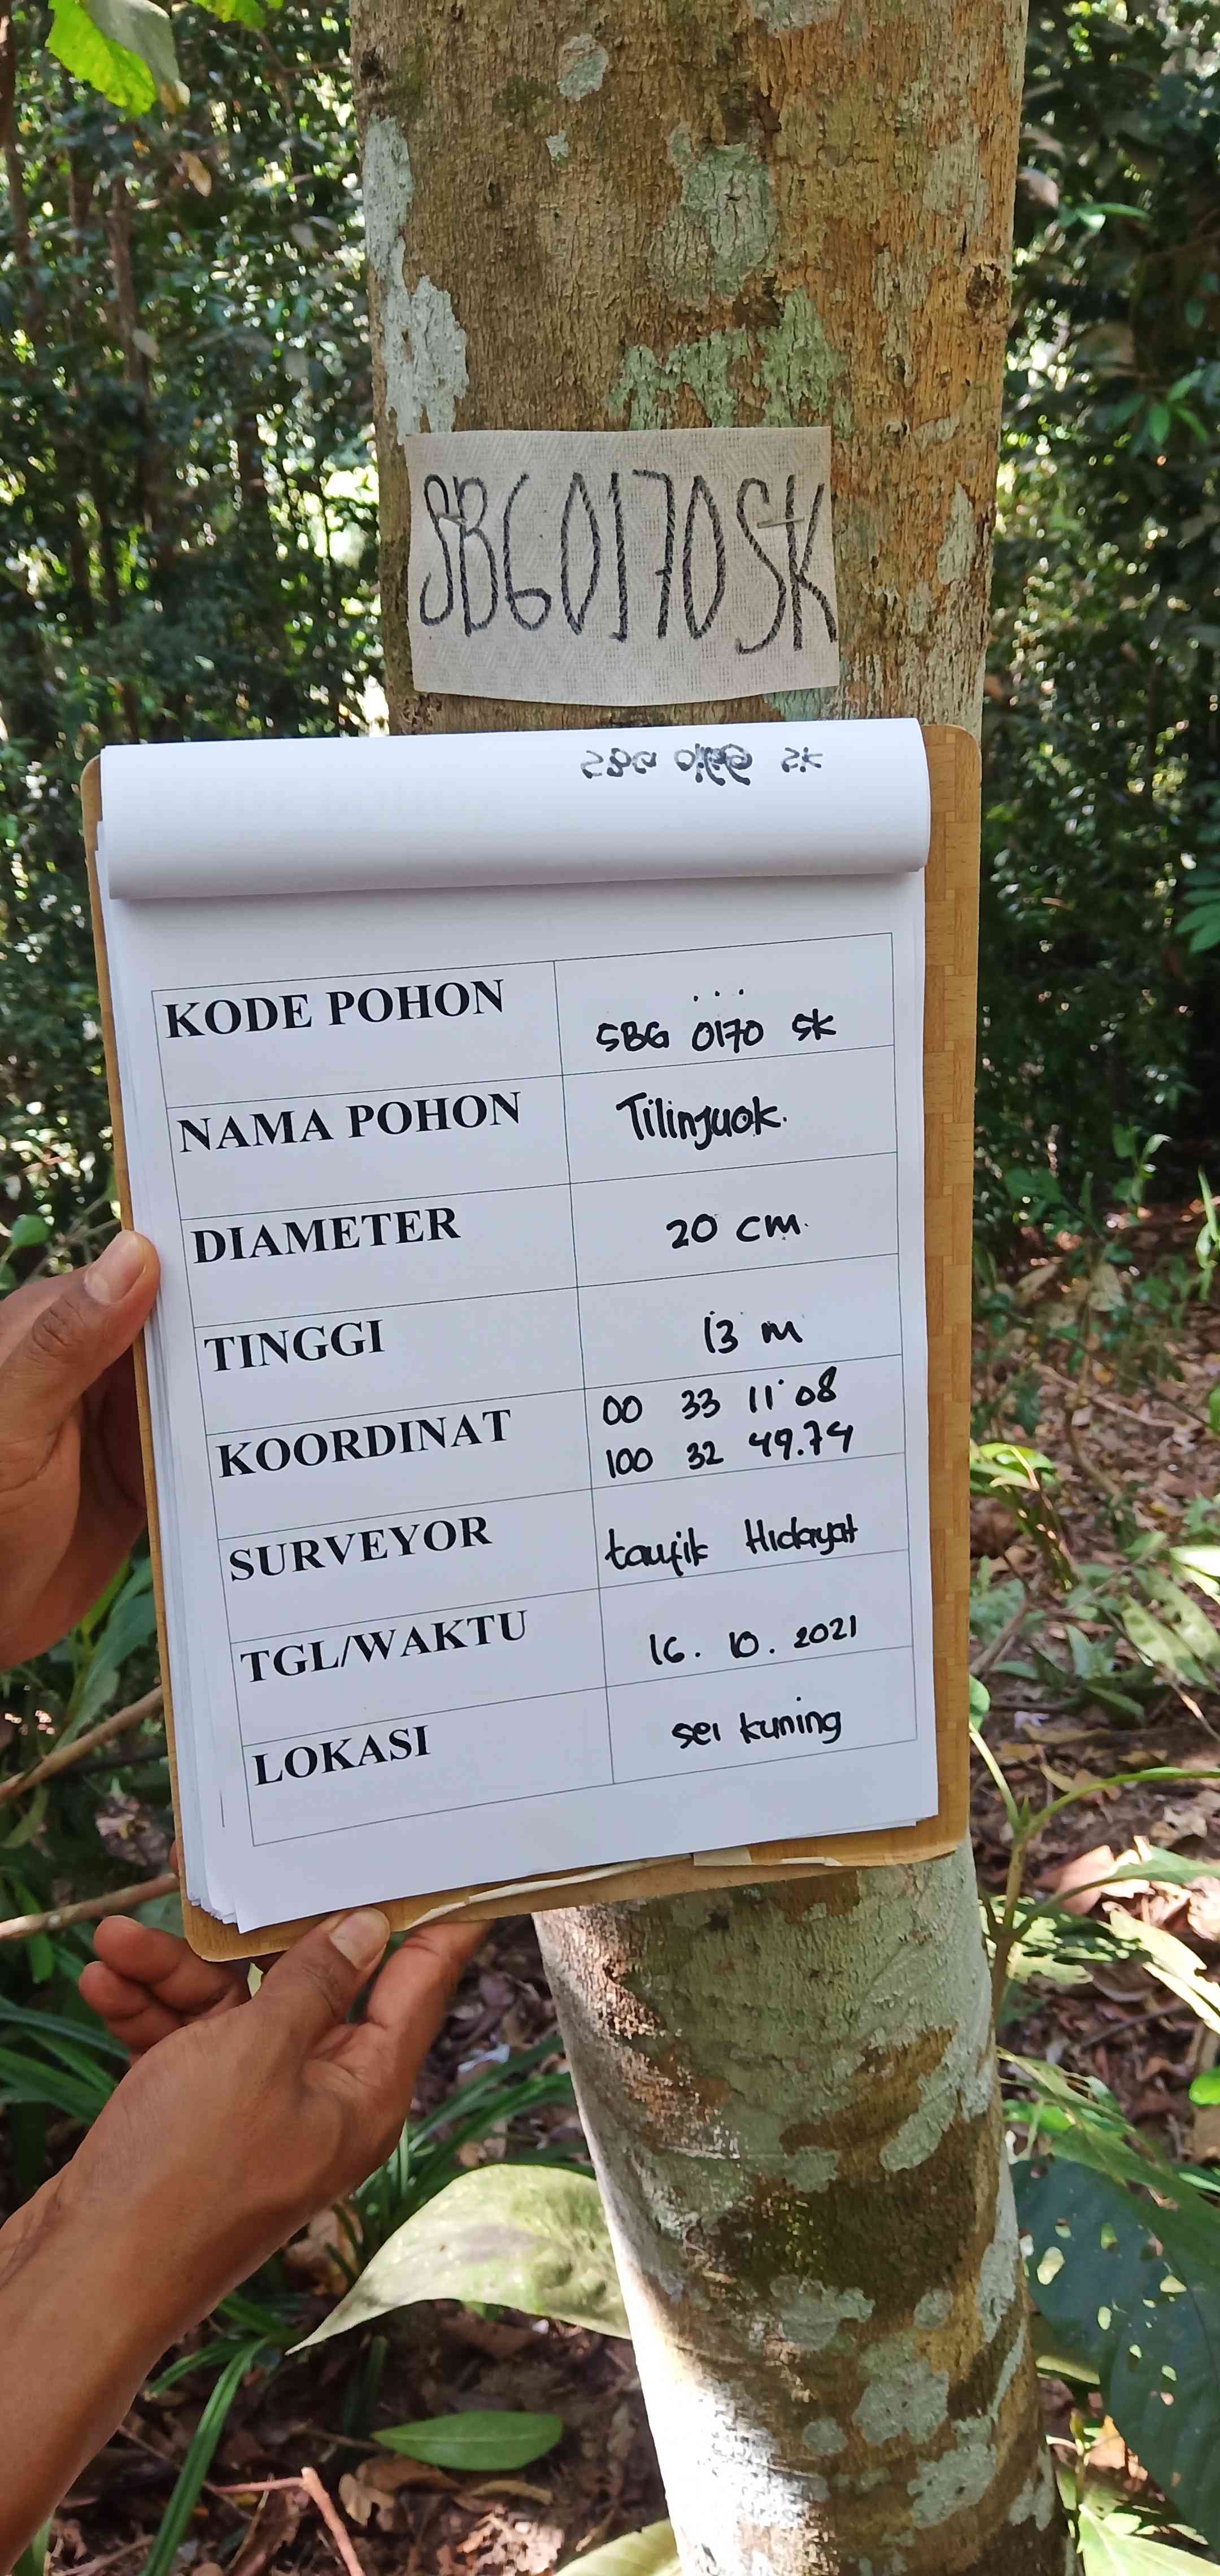 SBG0170SK
KODE POHON SBG 0170 SK
NAMA POHON Tilinjuok.
DIAMETER 20 cm.
TINGGI 13 m
KOORDINAT 00 33 11.08
100 32 49.74
SURVEYOR taufik Hidayat
TGL/WAKTU 16. 10. 2021
LOKASI sei kuning